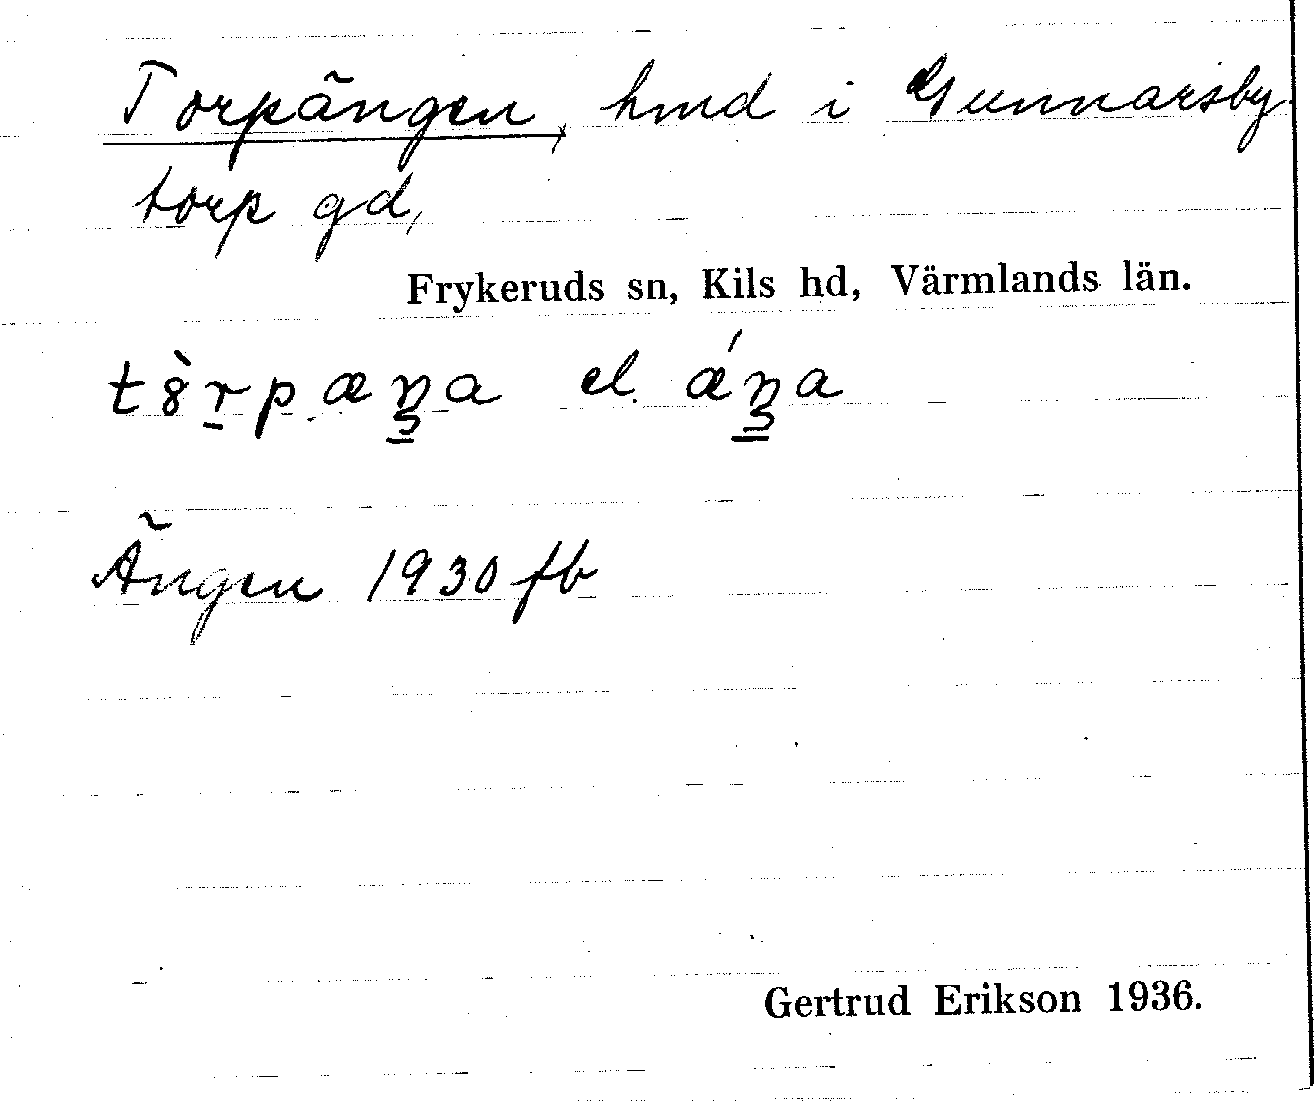 Torpängen, hmd i Gunnarsby
torp gd,
Frykeruds sn, Kils hd, Värmlands län.
t8̀r̠pæŋa el. ǽŋa
Ängen 1930 fb
Gertrud Erikson 1936.